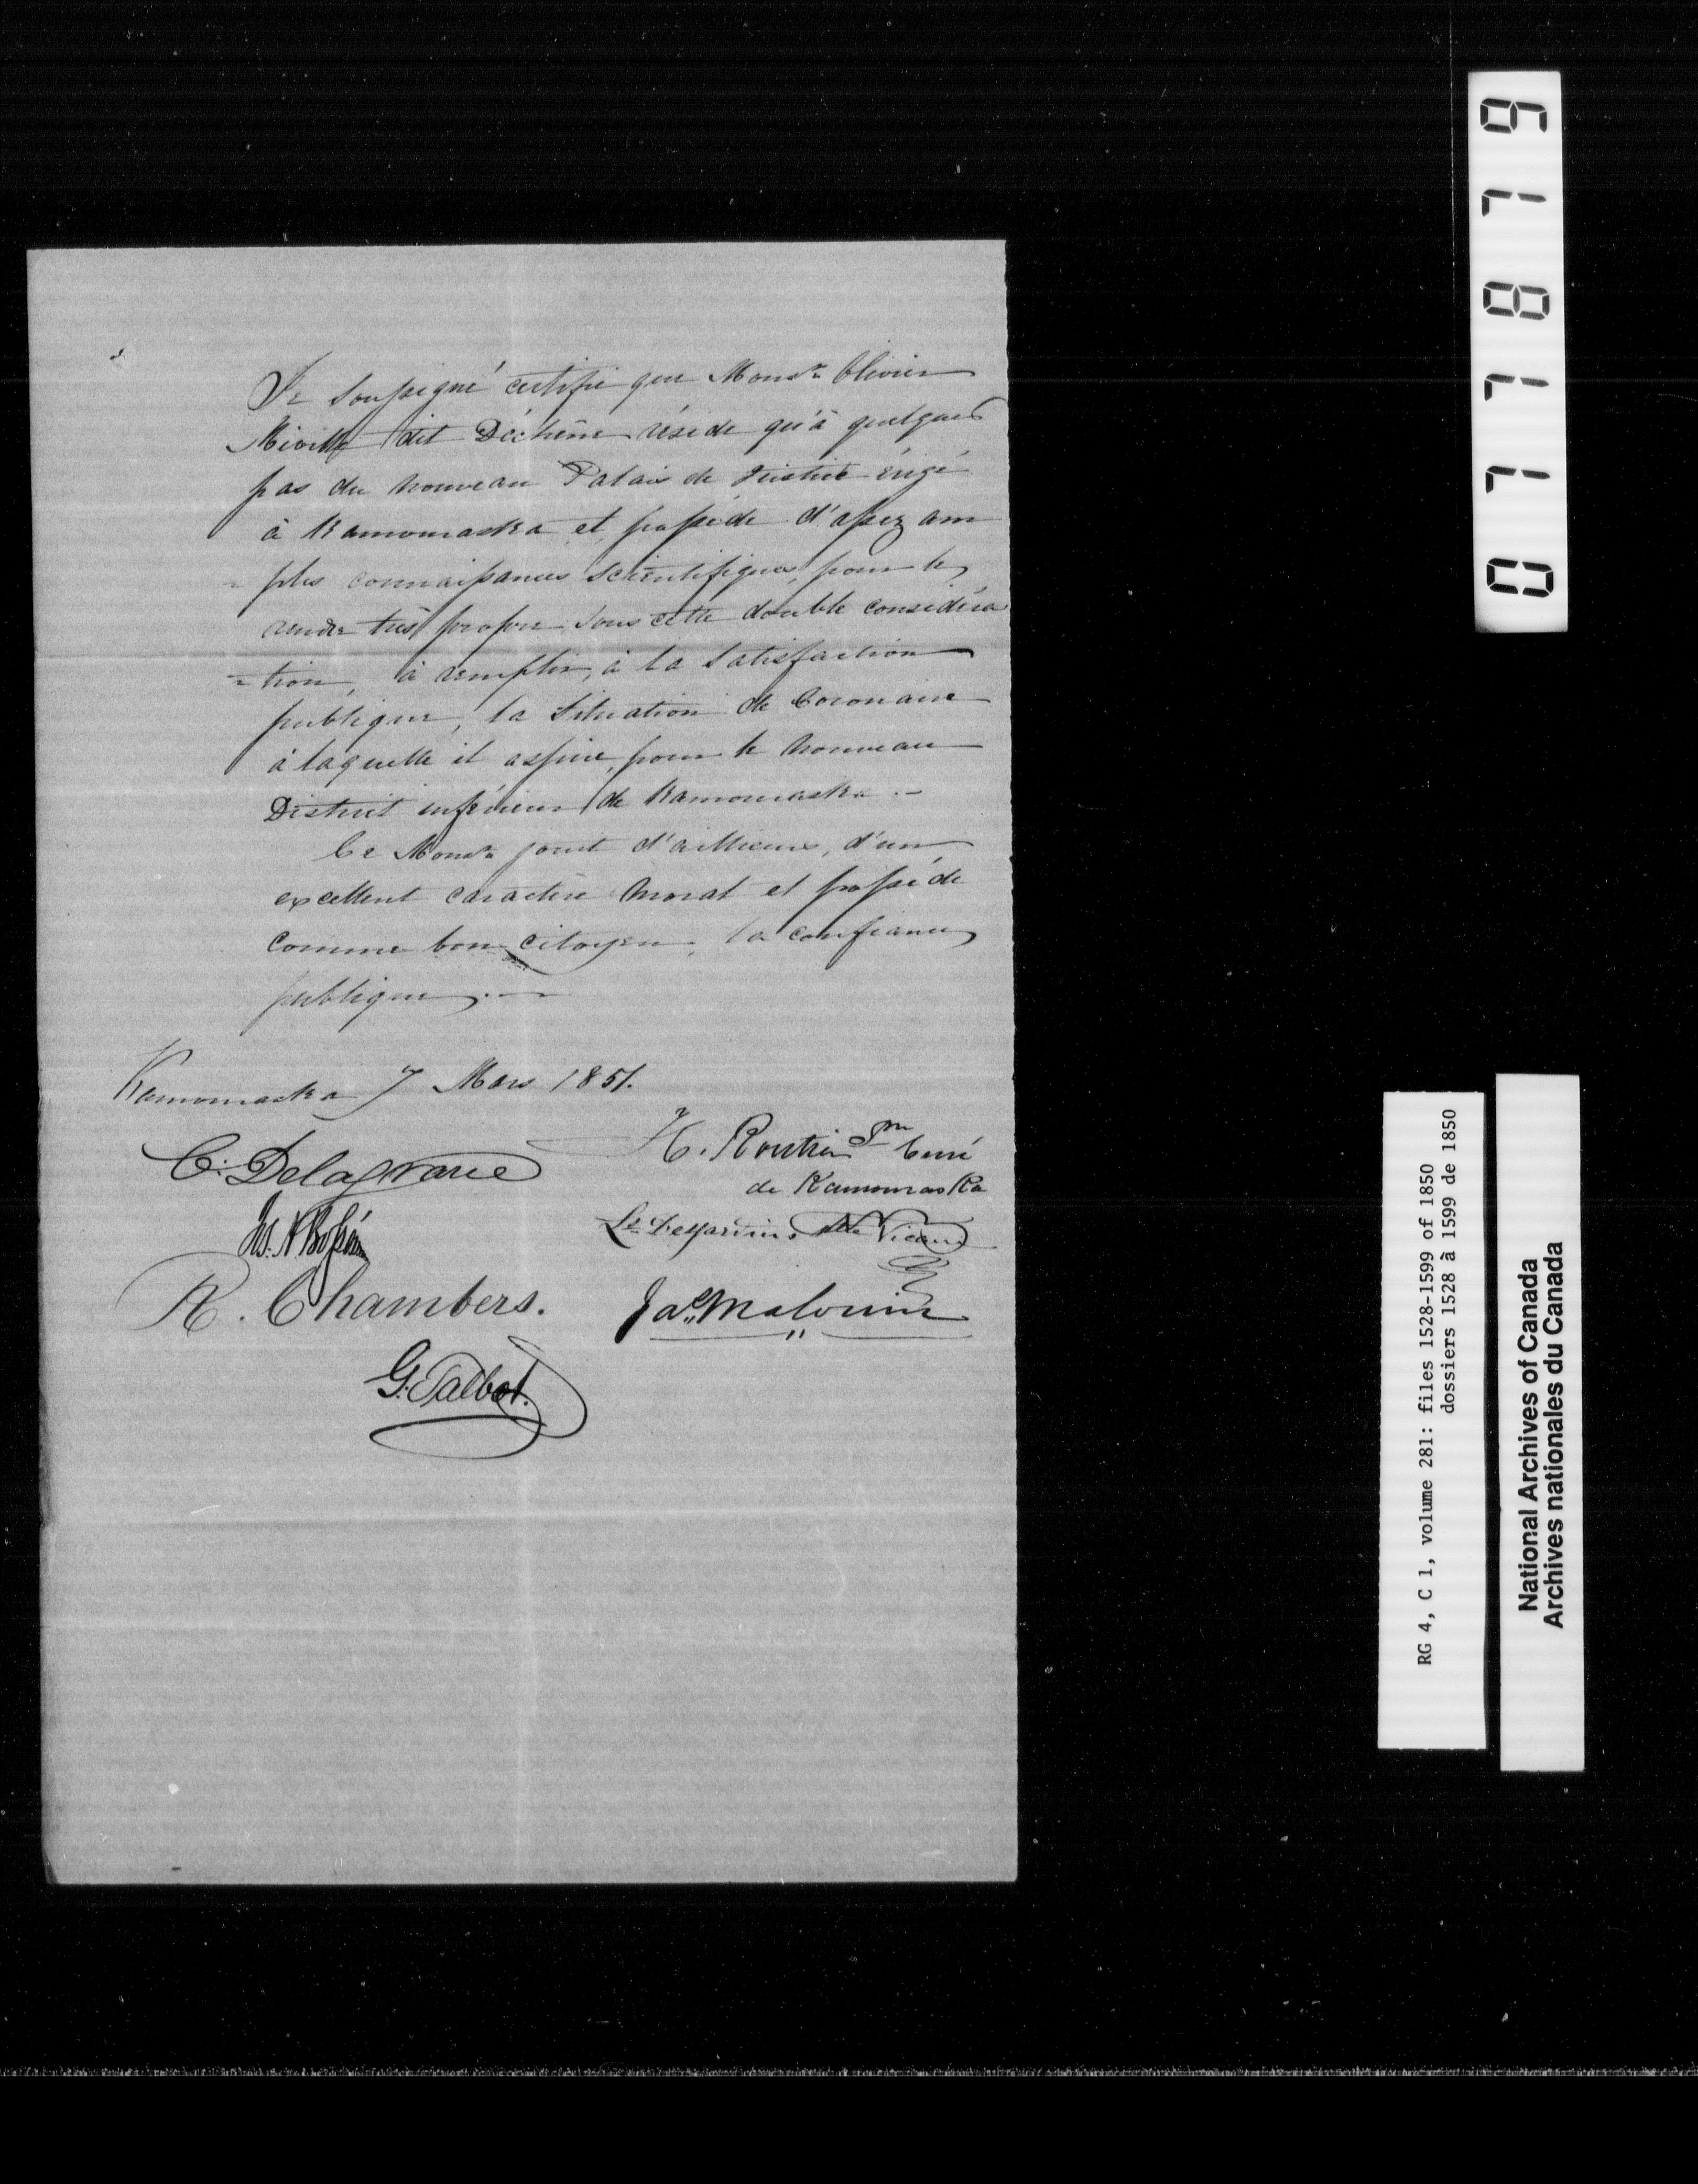 Je soussigné certifie que Monsr. Olivier
Miville dit Dechêne réside qu'à quelques
pas du nouveau Palais de Justice érigé
à Kamouraska et possède d'assez am
= ples connaissances scientifiques, pour le
rendre très propre sous cette double considéra
= tion, à remplir, à la satisfaction
publique, la situation de Coronaire
à laquelle il aspire, pour le nouveau
District inférieur de Kamouraska. –
Ce Monsr. jouit d'ailleurs, d'un
excellent caractère moral et possède
comme bon citoyen, la confiance
publique. —
Kamouraska 7 Mars 1851.
H. Routhier Ptre Curé
de Kamouraska
C: Delagrave
Ls. Desjardins Vicaire
R. Chambers.
Jas. Malouin
G. Talbot.
077879
RG 4, C 1, volume 281: files 1528-1599 of 1850
dossiers 1528 à 1599 de 1850
National Archives of Canada
Archives nationales du Canada